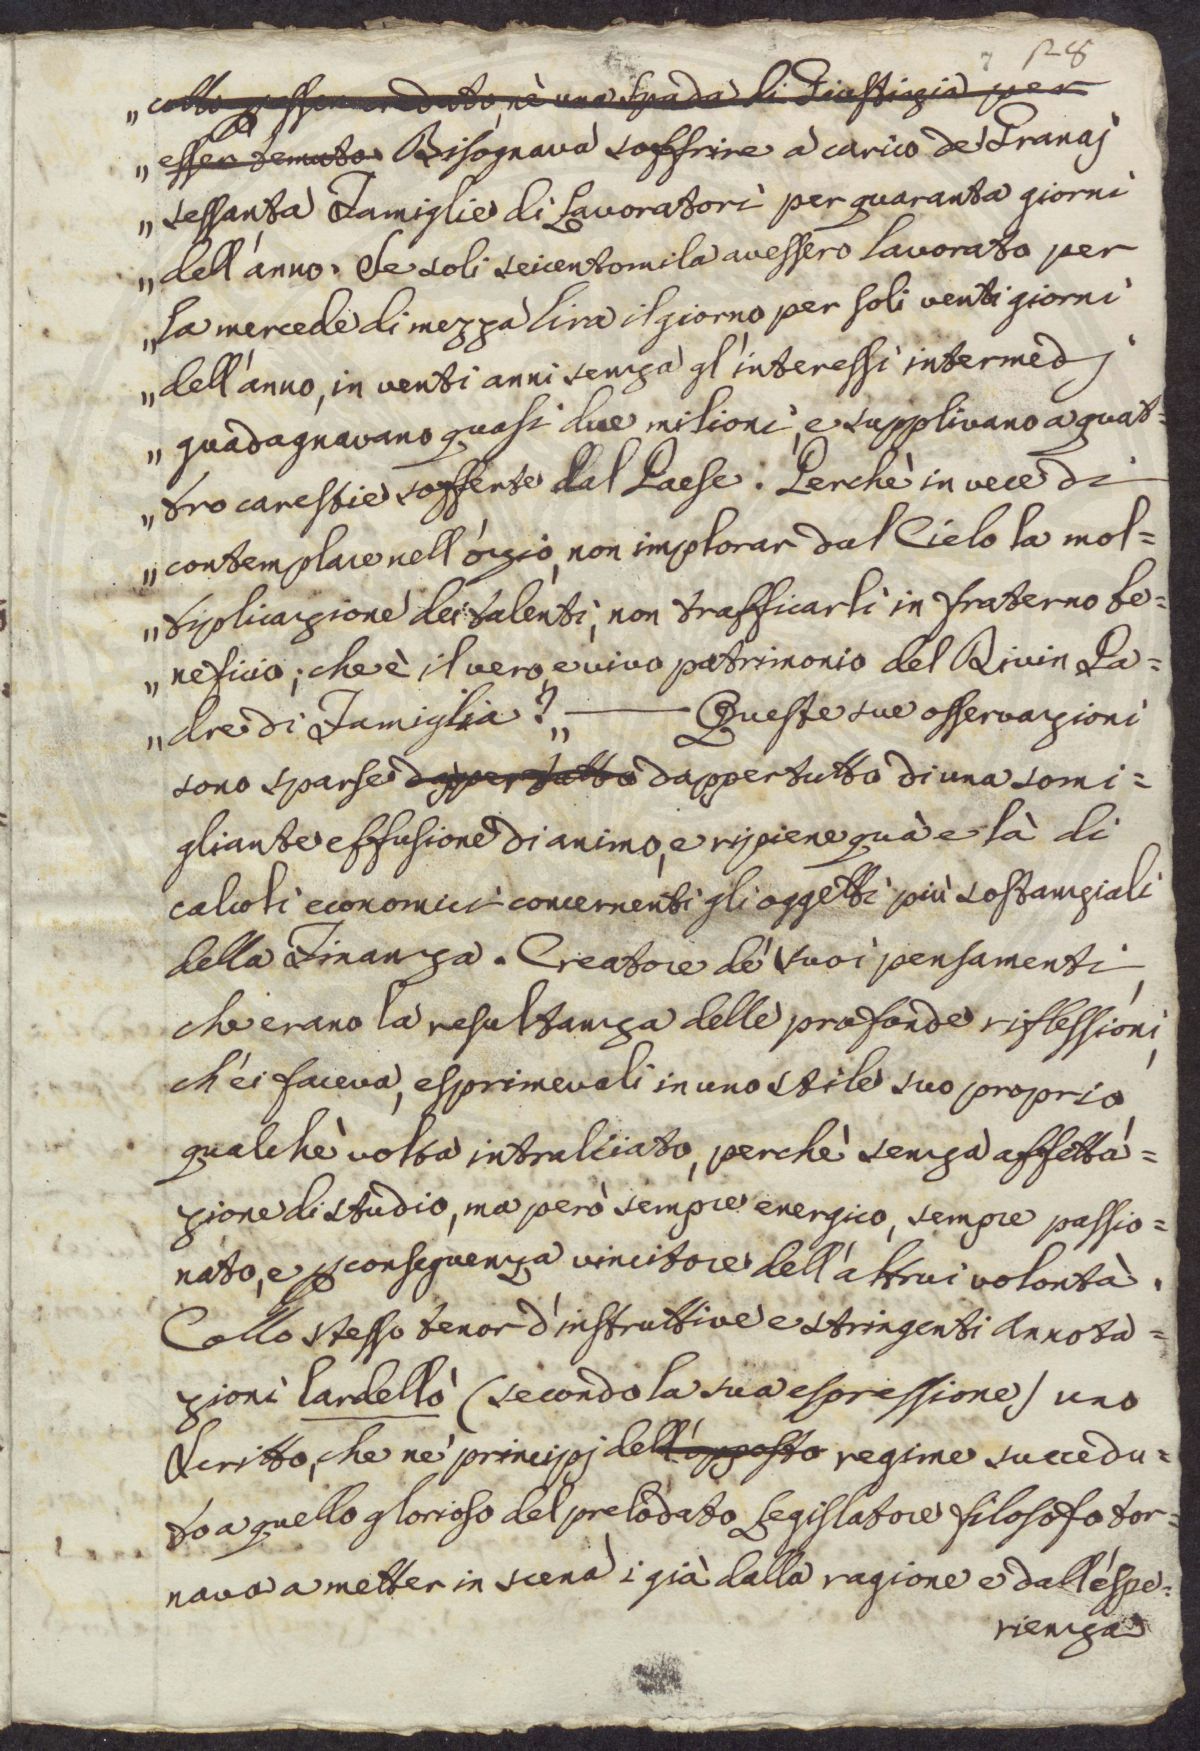 7 128
„ collo per esser creduto, nè una Spada di Giustizia per
„ esser temuto. Bisognava soffrire a carico de' Granaj
„ sessanta Famiglie di Lavoratori per quaranta giorni
„ dell'anno. Se soli seicentomila avessero lavorato per
„ la mercede di mezza lira il giorno per soli venti giorni
„ dell'anno, in venti anni senza gl'interessi intermedj
„ guadagnavano quasi due milioni, e supplivano a quat=
„ tro carestie sofferte dal Paese. Perchè in vece di
„ contemplare nell'ozio, non implorar dal Cielo la mol=
„ tiplicazione dei talenti, non trafficarli in fraterno be=
„ neficio; che è il vero, e vivo patrimonio del Divin Pa=
„ dre di Famiglia?„ —— Queste sue osservazioni
sono sparse dappertutto dappertutto di una somi=
gliante effusione di animo, e ripiene quà e là di
calcoli economici concernenti gli oggetti più sostanziali
della Finanza. Creatore de' suoi pensamenti,
che erano la resultanza delle profonde riflessioni,
ch'ei faceva, esprimevali in uno stile suo proprio,
qualche volta intralciato, perchè senza affetta=
zione di studio, ma però sempre energico, sempre passio=
nato, e p conseguenza vincitore dell'altrui volontà.
Collo stesso tenor d'instruttive e stringenti Annota=
zioni lardellò (secondo la sua espressione) uno
Scritto, che ne' principj dell'opposto regime succedu=
to a quello glorioso del prelodato Legislatore filosofo tor=
nava a metter in scena i già dalla ragione e dall'espe=
rienza